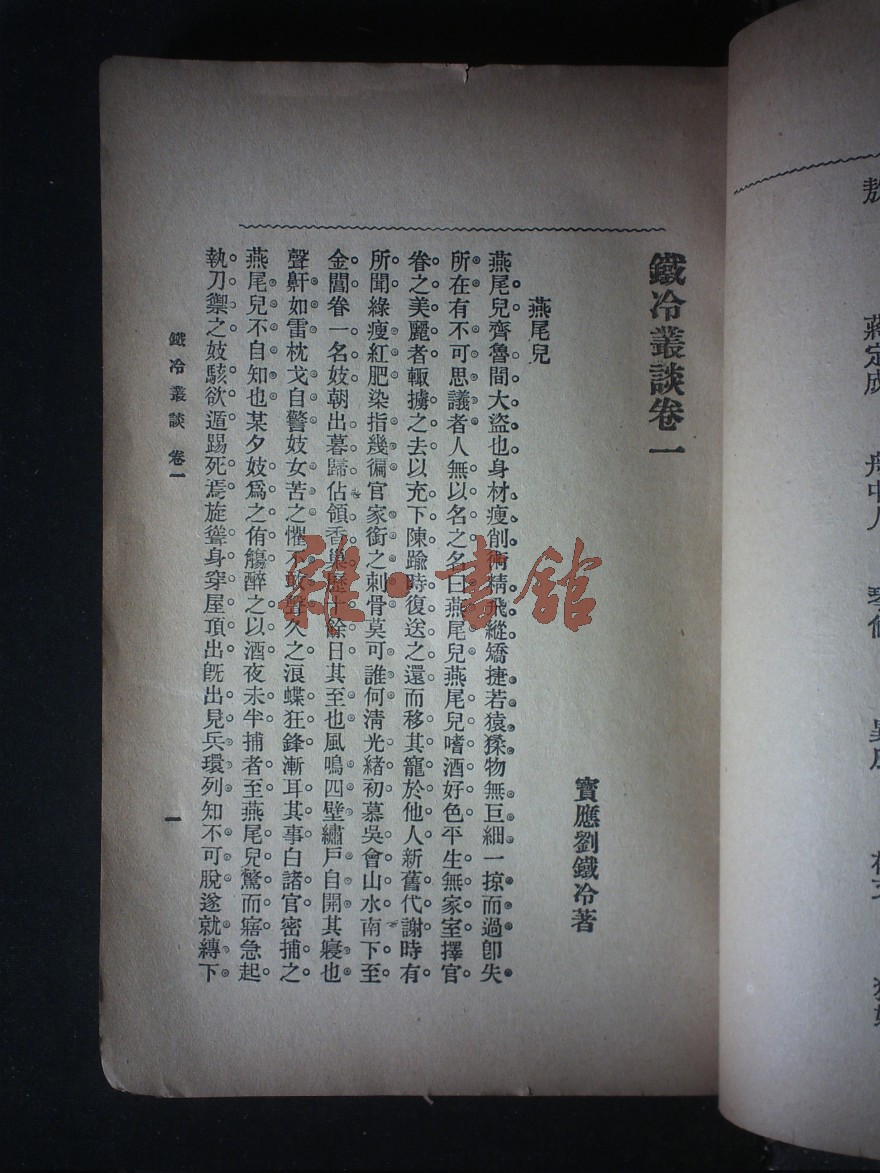 鐵冷叢談卷一
寶應劉鐵冷著
燕尾兒
燕尾兒齊魯間大盜也身材瘦削術精飛縱矯捷若猿猱物無巨細一掠而過卽失
所在有不可思議者人無以名之名曰燕尾兒燕尾兒嗜酒好色平生無家室擇官
眷之美麗者輒擄之去以充下陳踰時復送之還而移其寵於他人新舊代謝時有
所聞綠瘦紅肥染指幾徧官家銜之刺骨莫可誰何清光緒初慕吳會山水南下至
金閶眷一名妓朝出暮歸佔領香巢歷十餘日其至也風鳴四壁繡戶自開其寢也
聲鼾如雷枕戈自警妓女苦之懼不敢聲久之浪蝶狂鋒漸耳其事白諸官密捕之
燕尾兒不自知也某夕妓爲之侑觴醉之以酒夜未半捕者至燕尾兒驚而寤急起
執刀禦之妓駭欲遁踢死焉旋聳身穿屋頂出旣出見兵環列知不可脫遂就縛下
鐵冷叢談 卷一
一
雜·書館
蔣定成